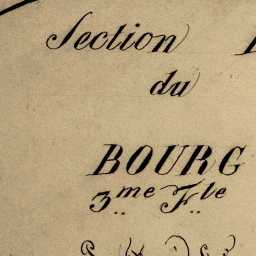 Section
du
BOURG
3.me F.lle